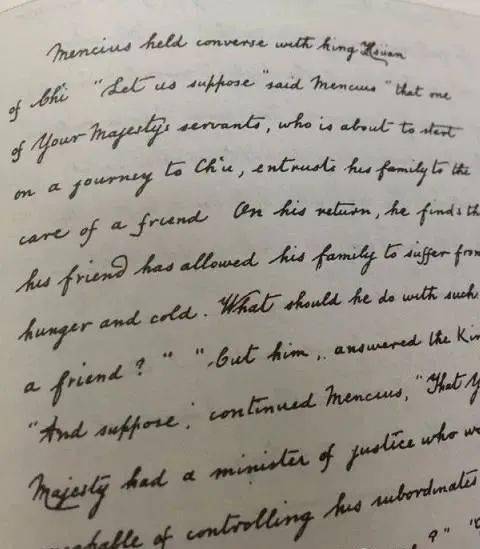 Mencius held converse with king Hsüan
of Ch'i "Let us suppose" said Mencius "that one
of Your Majesty's servants, who is about to start
on a journey to Ch'u, entrusts his family to the
care of a friend On his return, he finds th
his friend has allowed his family to suffer from
hunger and cold. What should he do with such
a friend?" "Cut him, answered the Kin
"And suppose", continued Mencius, "That Y
Majesty had a minister of justice who w
capable of controlling his subordinates
?"